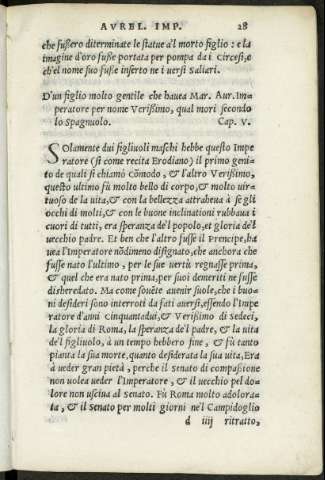 AVREL. IMP. 28
che fussero diterminate le statue al morto figlio : e la
imagine d'oro fusse portata per pompa da i Circesi, e
ch'el nome suo fusse inserto ne i uersi Saliari.
D'un figlio molto gentile che hauea Mar. Aur. Im=
peratore per nome Verissimo, qual morì secondo
lo Spagnuolo. Cap. V.
SOlamente dui figliuoli maschi hebbe questo Impe
ratore (si come recita Erodiano) il primo geni=
to de quali si chiamò Cōmodo, & l'altro Verissimo,
questo ultimo fù molto bello di corpo, & molto uir=
tuoso de la uita, & con la bellezza attrahea à se gli
occhi di molti, & con le buone inclinationi rubbaua i
cuori di tutti, era speranza de'l popolo, et gloria de'l
uecchio padre. Et ben che l'altro fusse il Prencipe, ha
uea l'Imperatore nōdimeno disignato, che anchora che
fusse nato l'ultimo, per le sue vertù regnasse prima,
& quel che era nato prima, per suoi demeriti ne fusse
disheredato. Ma come souēte auenir suole, che i buo=
ni desideri sono interroti da fati auersi, essendo l'Impe
ratore d'anni Cinquantadui, & Verissimo di Sedeci,
la gloria di Roma, la speranza de'l padre, & la uita
de'l figliuolo, à un tempo hebbero fine, & fù tanto
pianta la sua morte, quanto desiderata la sua uita, Era
à ueder gran pietà, perche il Senato di compassione
non uolea ueder l'Imperatore, & il uecchio pel do=
lore non usciua al Senato. Fù Roma molto adolora=
ta, & il Senato per molti giorni ne'l Campidoglio
d iiij ritratto,